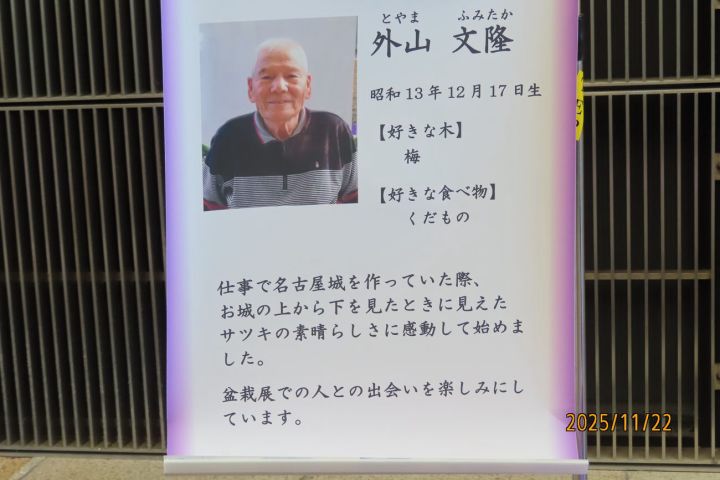 とやま ふみたか
外山 文隆
昭和13年12月17日生
【好きな木】
梅
【好きな食べ物】
くだもの
仕事で名古屋城を作っていた際、
お城の上から下を見たときに見えた
サツキの素晴らしさに感動して始めま
した。
盆栽展での人との出会いを楽しみにし
ています。
2025/11/22